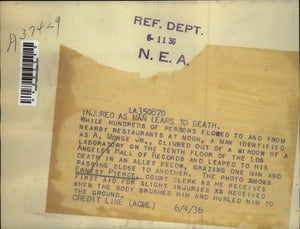 A37429
REF. DEPT.
6-11 36
N. E. A.
LA350870
INJURED AS MAN LEAPS TO DEATH.
WHILE HUNDREDS OF PERSONS FLOWED TO AND FROM
NEARBY RESTAURANTS AT NOON, A MAN IDENTIFIED
AS A. MONGE JR., CLIMBED OUT OF A WINDOW OF A
LABORATORY ON THE TENTH FLOOR OF THE LOS
ANGELES HALL OF RECORDS AND LEAPED TO HIS
DEATH IN AN ALLEY BELOW, GRAZING ONE MAN AND
PASSING CLOSE TO ANOTHER. THE PHOTO SHOWS
ERNEST PIERCE, COURT CLERK AS HE RECEIVED
FIRST AID FOR SLIGHT INJURIES RECEIVED
WHEN THE BODY BRUSHED HIM AND HURLED HIM TO
THE GROUND.
CREDIT LINE (ACME) 6/4/36